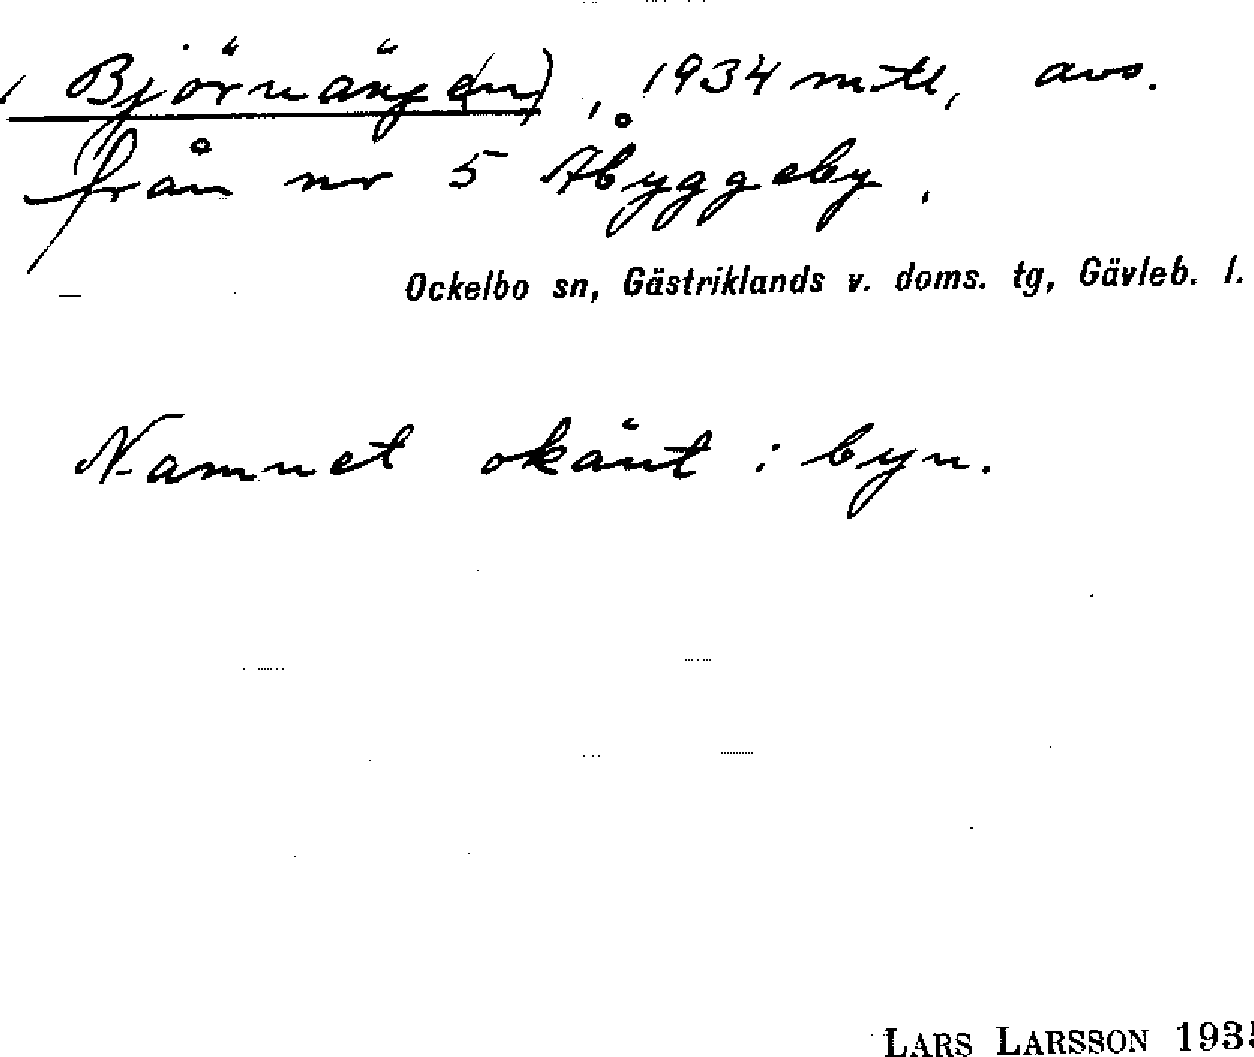 Björnäng(en), 1934 mtl, avs.
från nr 5 Åbyggeby.
Ockelbo sn, Gästriklands v. doms. tg, Gävleb. l.
Namnet okänt i byn.
LARS LARSSON 1935